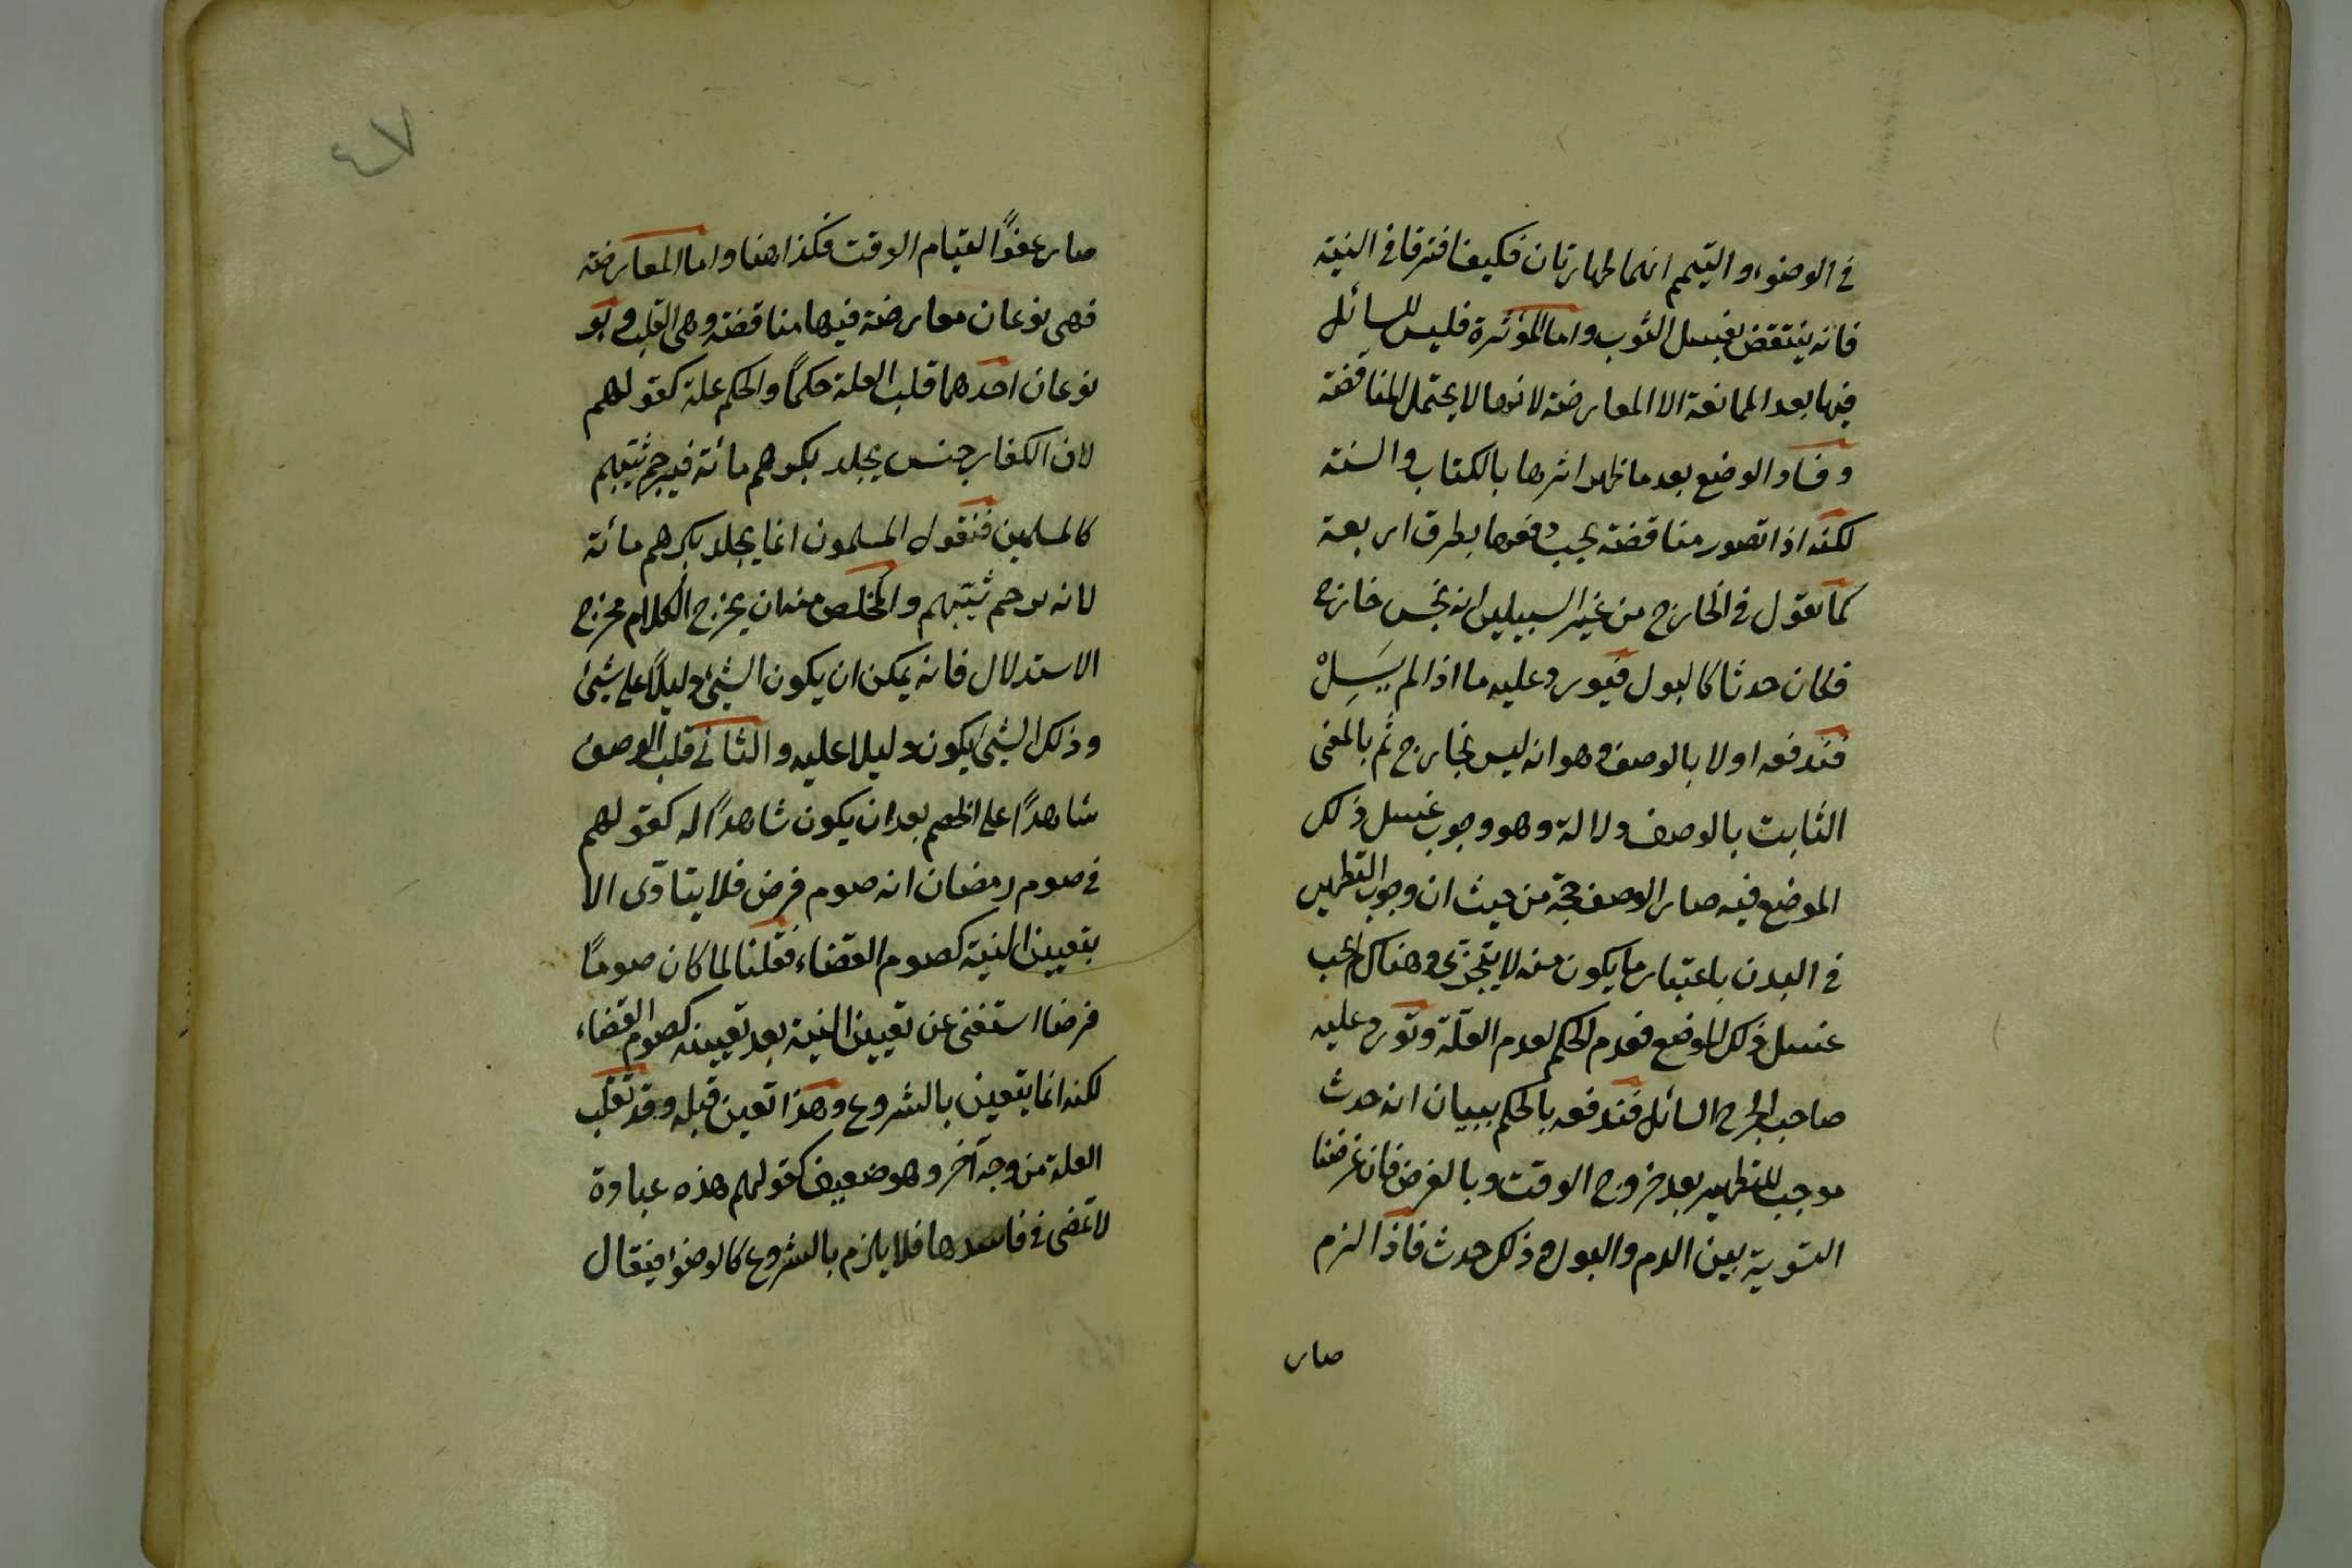 في الوضوء والتيمم انهما طهارتان فكيف افترقا في النية
فانه ينتقض بغسل الثوب واما المؤثرة فليس للسائل
فيها بعد الممانعة الا المعارضة لانها لا يحتمل المناقضة
وفساد الوضع بعد ما ظهر اثرها بالكتاب والسنة
لكنه اذا تصور مناقضة يجب دفعها بطرق اربعة
كما نقول في الخارج من غير السبيلين انه نجس خارج
فكان حدثا كالبول فيورد عليه ما اذا لم يَسِلْ
فندفعه اولا بالوصف وهو انه ليس بخارج ثم بالمعنى
الثابت بالوصف دلالة وهو وجوب غسل ذلك
الموضع فيه صار الوصف حجة من حيث ان وجوب التطهير
في البدن باعتبار ما يكون منه لا يتجزى وهناك لم يجب
غسل ذلك الموضع فعدم الحكم لعدم العلة وتورد عليه
صاحب الجرح السائل فندفعه بالحكم ببيان انه حدث
موجب للتطهير بعد خروج الوقت وبالغرض فان غرضنا
التسوية بين الدم والبول وذلك حدث فاذا لزم
صار
٤٧
صار عفوًا لقيام الوقت فكذا هنا واما المعارضة
فهي نوعان معارضة فيها مناقضة وهي القلب وهو
نوعان احدهما قلب العلة حكمًا والحكم علة كقولهم
لان الكفار جنس يجلد بكرهم مائة فيرجم ثيبهم
كالمسلمين فنقول المسلمون انما يجلد بكرهم مائة
لانه يرجم ثيبهم والمخلص منه ان يخرج الكلام مخرج
الاستدلال فانه يمكن ان يكون الشئ دليلًا على شئ
وذلك الشئ يكون دليلا عليه والثاني قلب الوصف
شاهدًا على الخصم بعد ان يكون شاهدًا له كقولهم
في صوم رمضان انه صوم فرض فلا يتادى الا
بتعيين النية كصوم القضاء فقلنا لما كان صومًا
فرضا استغنى عن تعيين النية بعد تعيينه كصوم القضاء
لكنه انما يتعين بالشروع وهذا تعين قبله وقد تقلب
العلة من وجه آخر وهو ضعيف كقولهم هذه عبادة
لا تمضى في فاسدها فلا يلزم بالشروع كالوضوء فيقال